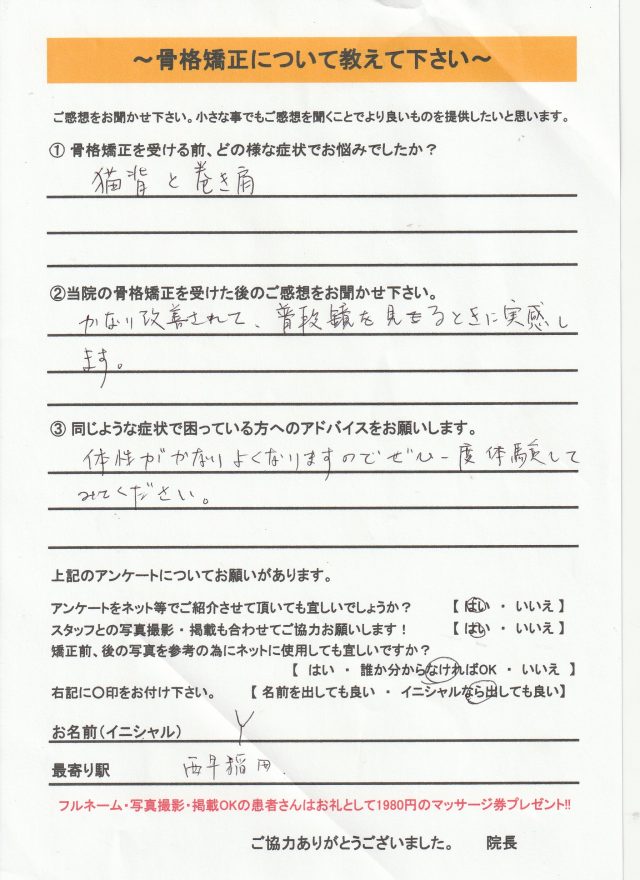 ～骨格矯正について教えて下さい～
ご感想をお聞かせ下さい。小さな事でもご感想を聞くことでより良いものを提供したいと思います。
① 骨格矯正を受ける前、どの様な症状でお悩みでしたか？
猫背と巻き肩
②当院の骨格矯正を受けた後のご感想をお聞かせ下さい。
かなり改善されて、普段鏡を見るときに実感し
ます。
③ 同じような症状で困っている方へのアドバイスをお願いします。
体性がかなりよくなりますのでぜひ一度体験して
みてください。
上記のアンケートについてお願いがあります。
アンケートをネット等でご紹介させて頂いても宜しいでしょうか？ 【 はい ・ いいえ 】
スタッフとの写真撮影・掲載も合わせてご協力お願いします！ 【 はい ・ いいえ 】
矯正前、後の写真を参考の為にネットに使用しても宜しいですか？
【 はい ・ 誰か分からなければOK ・ いいえ 】
右記に〇印をお付け下さい。 【 名前を出しても良い ・ イニシャルなら出しても良い】
お名前（イニシャル） Y
最寄り駅 西早稲田.
フルネーム・写真撮影・掲載OKの患者さんはお礼として1980円のマッサージ券プレゼント!!
ご協力ありがとうございました。 院長